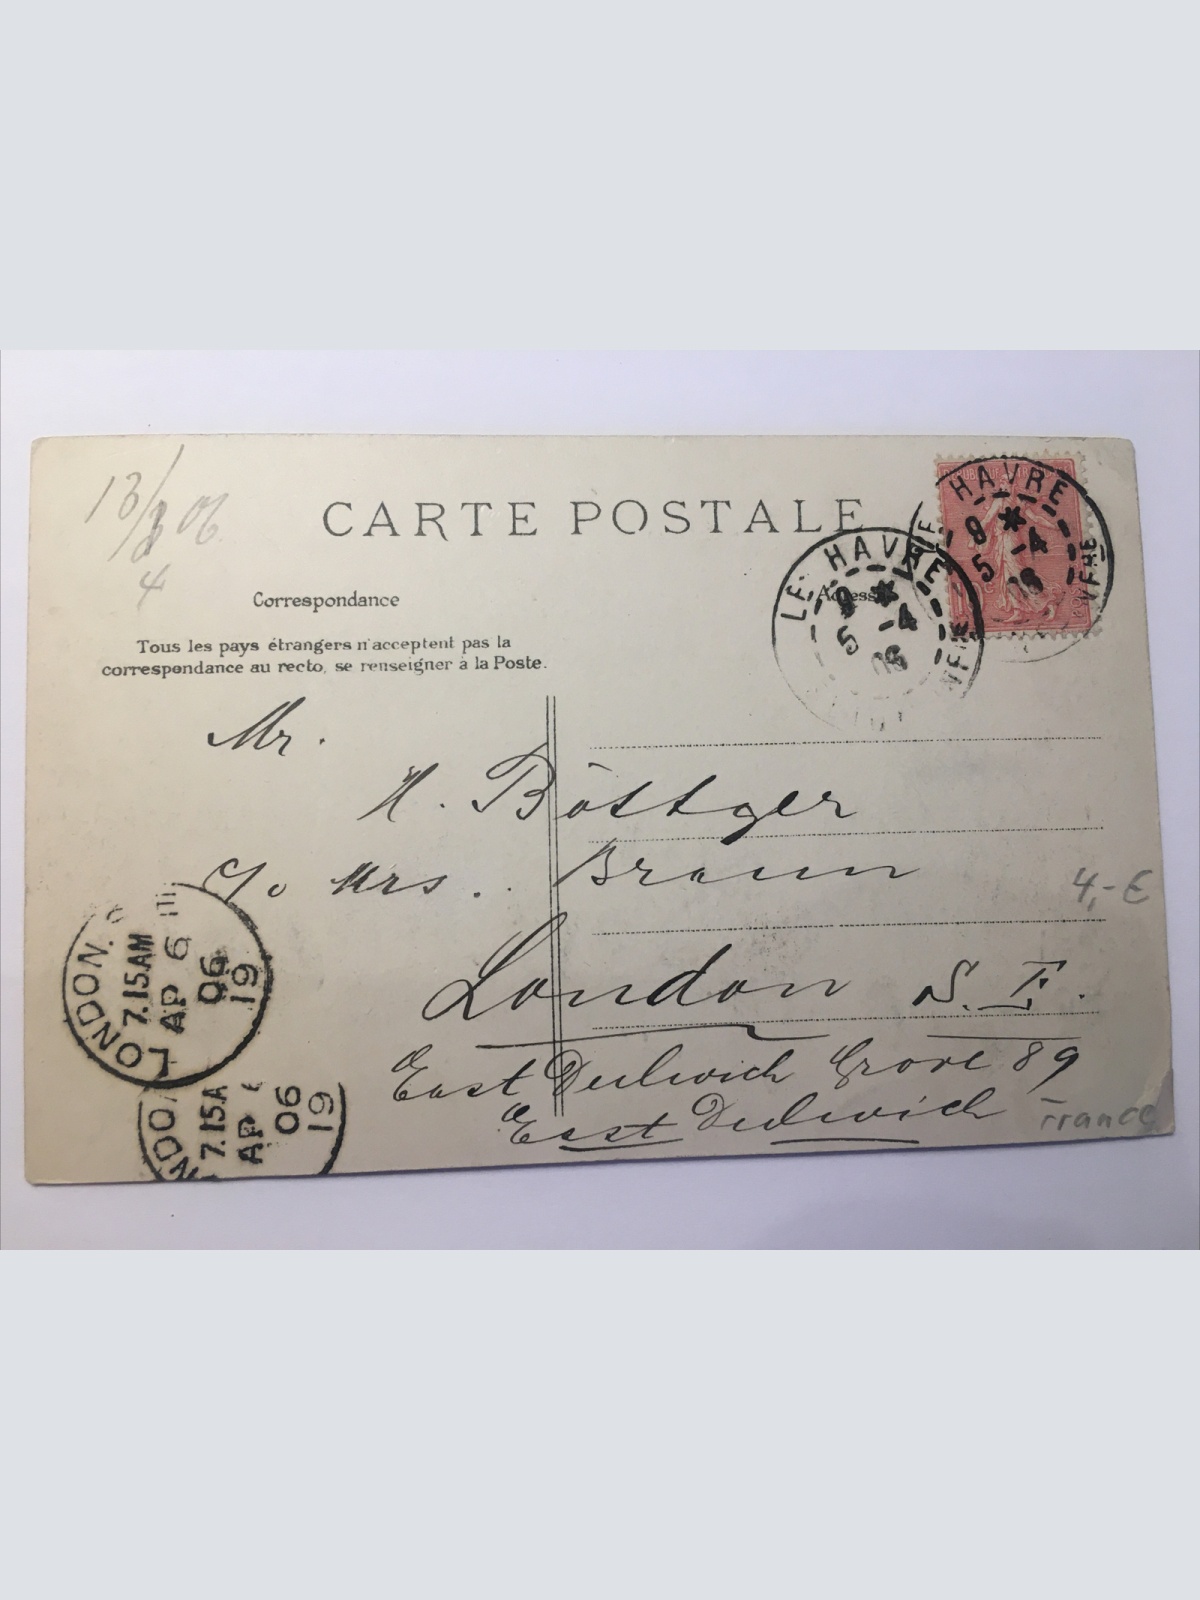 13/3 06
4
CARTE POSTALE
Correspondance
Adresse
Tous les pays étrangers n'acceptent pas la
correspondance au recto, se renseigner à la Poste.
LE HAVRE
8 *
5 -4
06
LE HAVRE
8 *
5 -4
06
Mr.
H. Böttger
c/o Mrs. Braun
London S.E.
East Dulwich Grove 89
East Dulwich
4,- €
France
LONDON. S.E.
7.15AM
AP 6
06
19
7.15A
AP 6
06
19